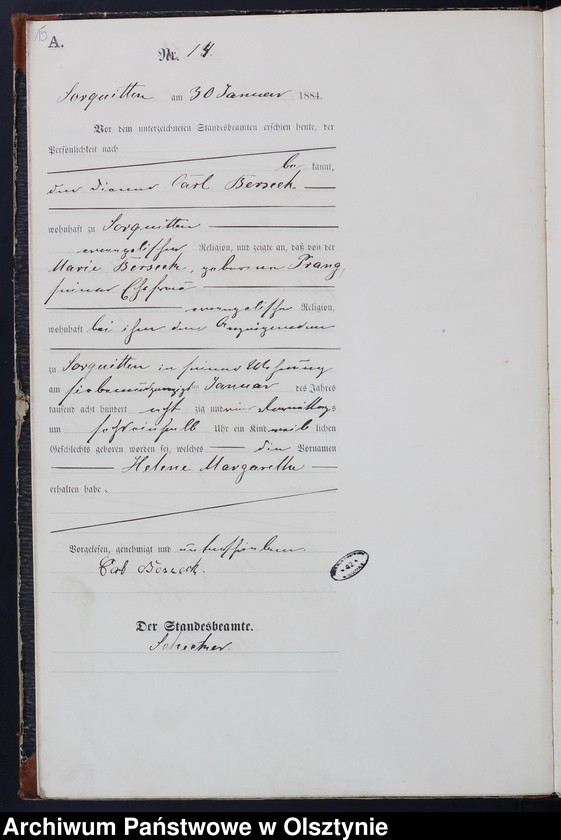 15
A.
Nr. 14.
Sorquitten am 30 Januar 1884.
Vor dem unterzeichneten Standesbeamten erschien heute, der
Persönlichkeit nach
be kannt,
der Diener Carl Berseck
wohnhaft zu Sorquitten
evangelischer Religion, und zeigte an, daß von der
Marie Berseck, geborene Prang,
seiner Ehefrau
evangelischer Religion,
wohnhaft bei ihm dem Anzeigenden
zu Sorquitten in seiner Wohnung
am siebenundzwanzigsten Januar des Jahres
tausend acht hundert acht zig und vier Vormittags
um sechseinhalb Uhr ein Kind weib lichen
Geschlechts geboren worden sei, welches die Vornamen
Helene Margarethe
erhalten habe.
Vorgelesen, genehmigt und unterschrieben
Carl Berseck.
Der Standesbeamte.
Archiwum Państwowe w Olsztynie